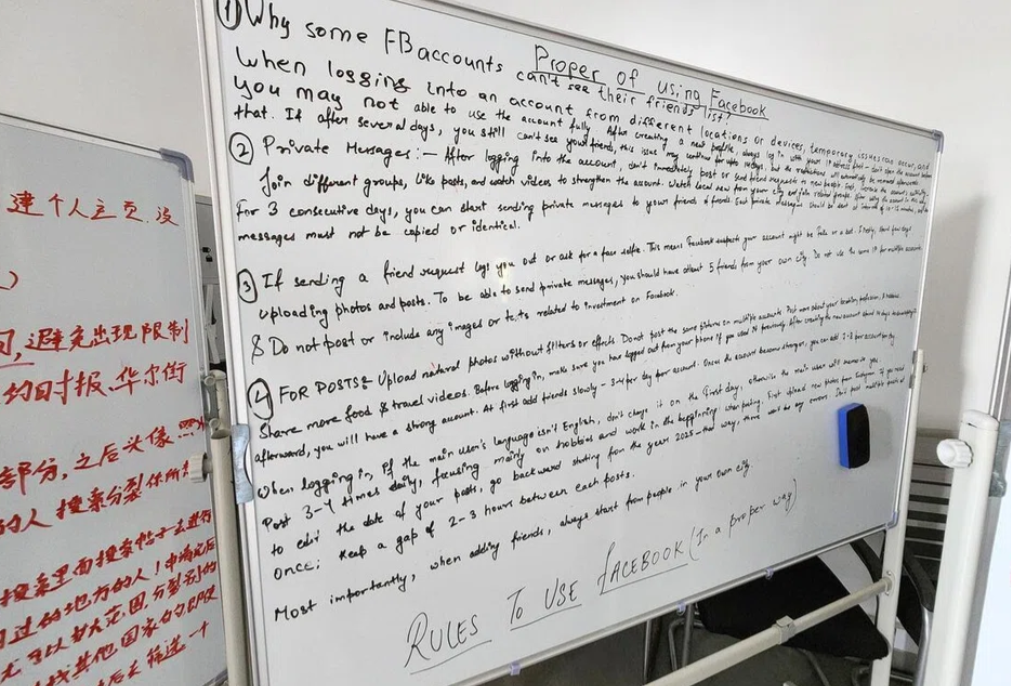 建个人主页.没
)
避免出现限制
的时报.华尔街
部分,之后头像
的人 搜索
搜索里面搜索帖子去进行
过的地方的人!申请完后
可以扩大范围,分裂别的
找其他国家的
后去筛选一个
① Why some FB accounts can't see their friends list?
Proper of using Facebook
When logging into an account from different locations or devices, temporary issues can occur, and
you may not able to use the account fully. After creating a new profile, always log in with your IP address first - don't open the account before
that. If after several days, you still can't see your friends, this issue may continue for upto days, but the restrictions will automatically be removed afterwards.
② Private Messages:- After logging into the account, don't immediately post or send friend requests to new people. First, increase the account activity.
Join different groups, like posts, and watch videos to strengthen the account. Watch local news from your city and follow related groups. After using the account in this way
For 3 consecutive days, you can start sending private messages to your friends of friends. Each private message should be sent at interval of 10-15 minutes, and the
messages must not be copied or identical.
③ If sending a friend request logs you out or ask for a face selfie. This means Facebook suspects your account might be fake or a bot.
Uploading photos and posts. To be able to send private messages, you should have atleast 5 friends from your own city. Do not use the same IP for multiple accounts.
& Do not post or include any images or texts related to investment on Facebook.
④ FOR POSTS:- Upload natural photos without filters or effects. Donot post the same pictures on multiple accounts. Post more about your location, profession, & hobbies
Share more food & travel videos. Before logging in, make sure you have logged out from your phone if you used it previously. After creating the new account
afterward, you will have a strong account. At first add friends slowly - 3-4 per day per account. Once the account becomes stronger, you can add per account per day
When logging in, if the main user's language isn't English, don't change it on the first day, otherwise the main user will remove you.
Post 3-4 times daily, focusing mainly on hobbies and work in the beginning when posting. First upload new photos from Instagram. If you need
to edit the date of your posts, go backward starting from the year 2025 - that way, there will be any errors. Don't post multiple posts at
once; keep a gap of 2-3 hours between each posts.
Most importantly, when adding friends, always start from people in your own city.
RULES TO USE FACEBOOK (In a proper way)